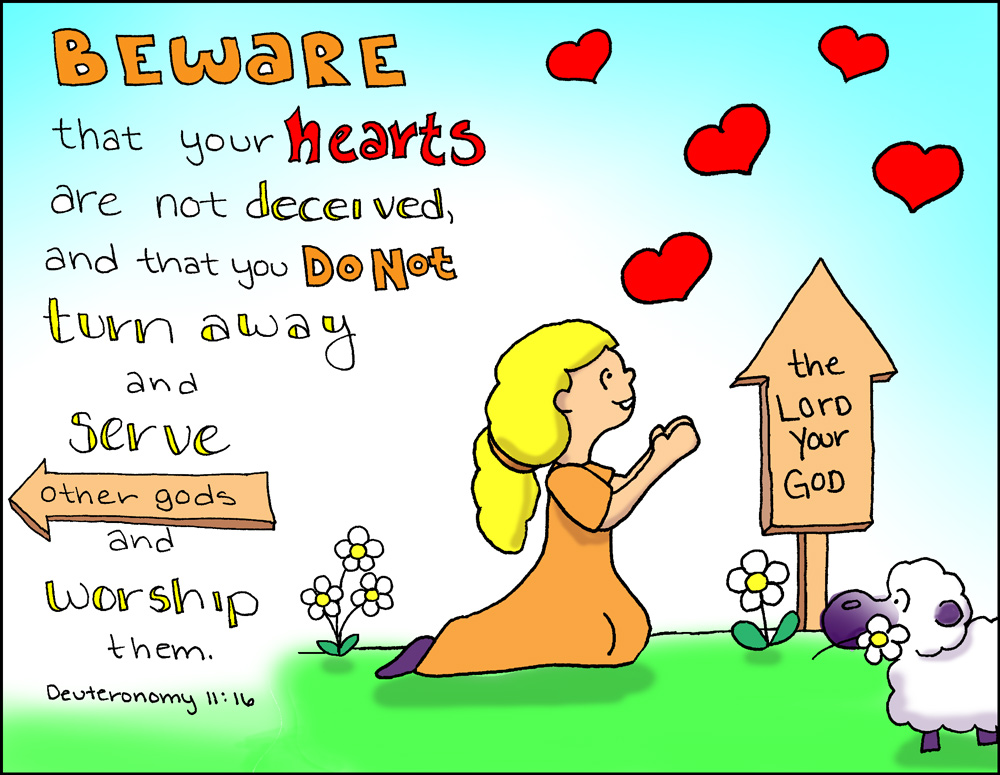 BEWARE
that your hearts
are not deceived,
and that you Do Not
turn away
and
serve
other gods
and
worship
them.
Deuteronomy 11:16
the
LORD
Your
GOD